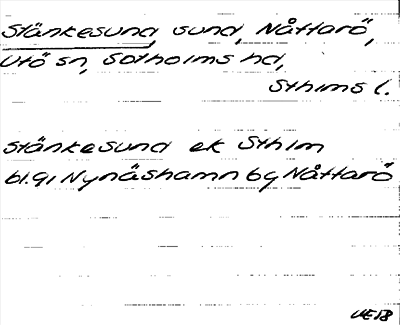 Stänkesund, sund, Nåttarö,
Utö sn, Sotholms hd,
Sthlms l.
Stänkesund ek Sthlm
bl. 91 Nynäshamn bg Nåttarö
UE18